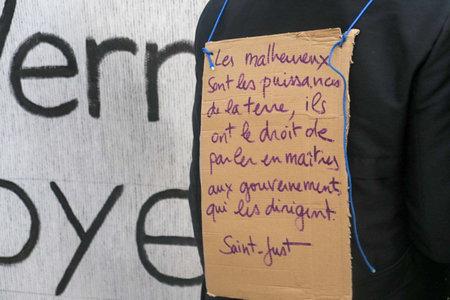 ern
oye
Les malheureux
sont les puissances
de la terre, ils
ont le droit de
parler en maîtres
aux gouvernements
qui les dirigent.
Saint-Just